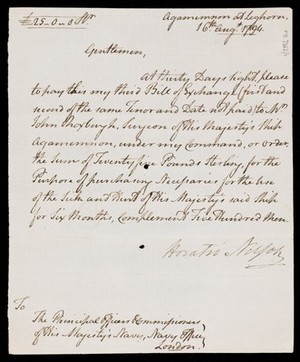 £25-0-0 Str
Agamemnon at Leghorn,
16th Aug. 1794.
Gentlemen,
At thirty Days sight, please
to pay this my third Bill of Exchange (first and
second of the same Tenor and Date not paid) to Mr
John Roxburgh, Surgeon of His Majesty's Ship
Agamemnon, under my Command, or order,
the Sum of Twenty five Pounds Sterling, for the
Purpose of purchasing Necessaries for the Use
of the Sick and Hurt of His Majesty's said Ship
for Six Months, Complement Five Hundred Men.
Horatio Nelson
To
The Principal Officers & Commissioners
of His Majesty's Navy, Navy Office,
London.